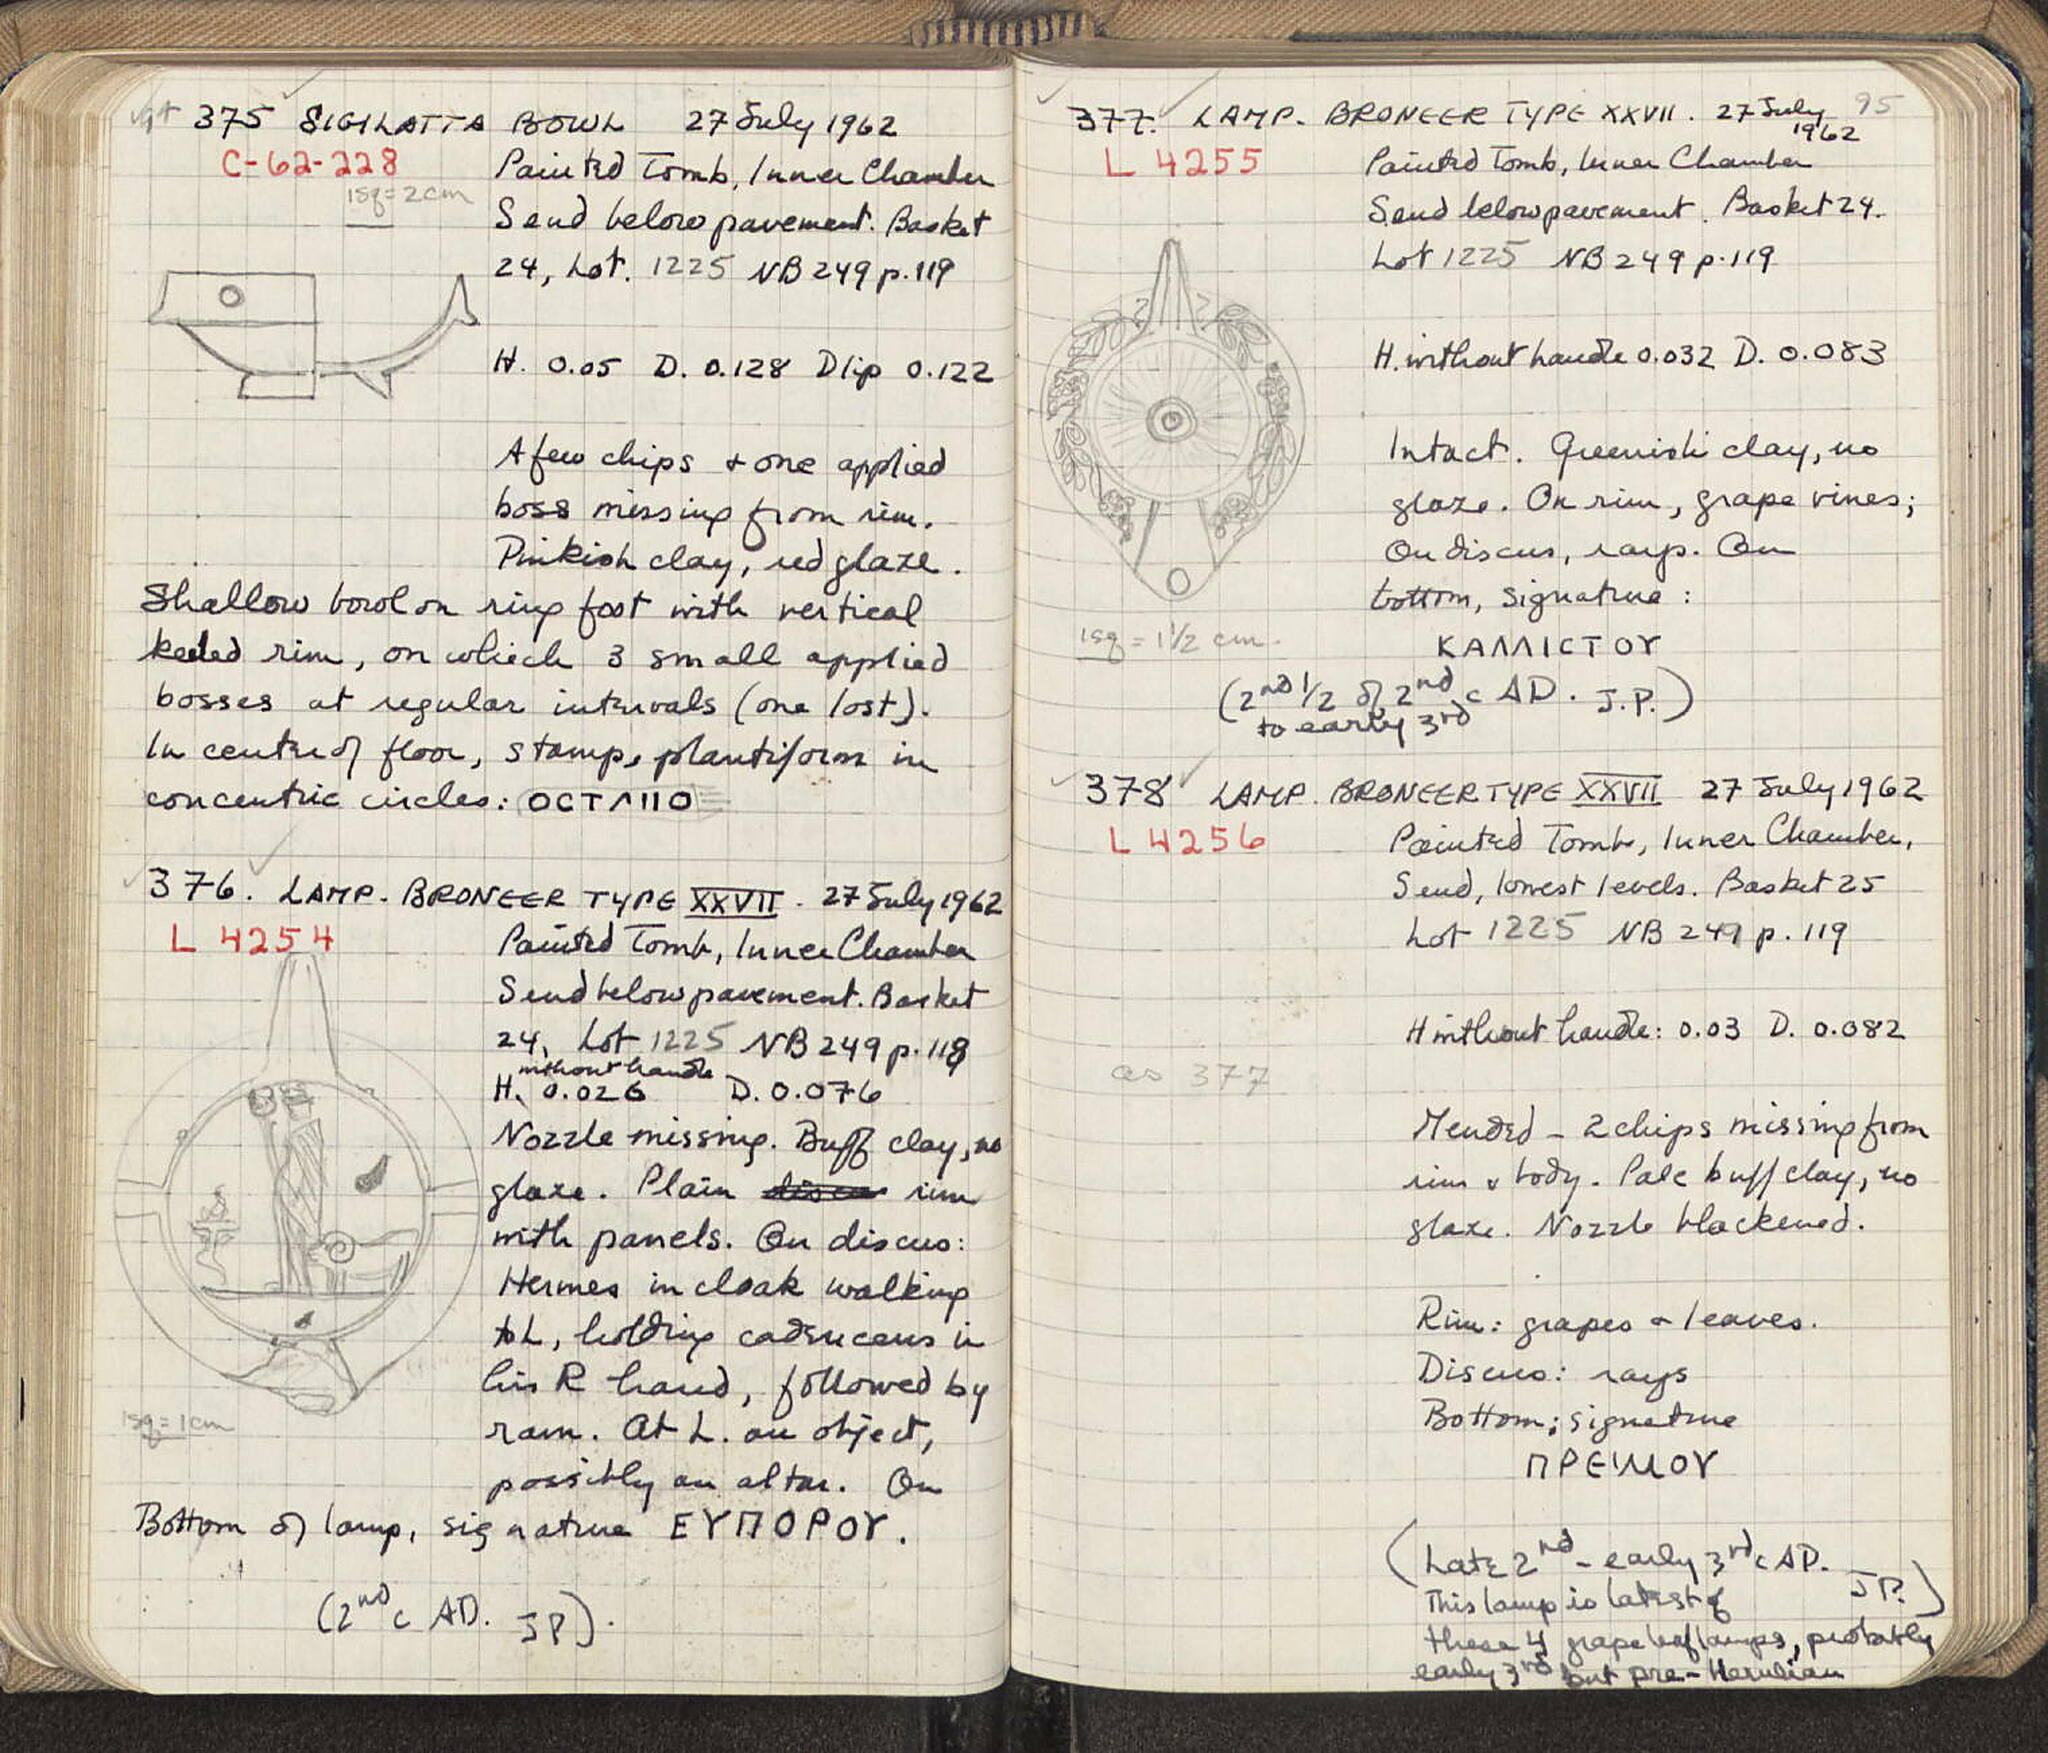 375 SIGILATTA BOWL 27 July 1962
C-62-228
1sq=2cm
Painted Tomb, Inner Chamber
Sand below pavement. Basket
24, Lot. 1225 NB 249 p.119
H. 0.05 D. 0.128 D lip 0.122
A few chips + one applied
boss missing from rim.
Pinkish clay, red glaze.
Shallow bowl on ring foot with vertical
keeled rim, on which 3 small applied
bosses at regular intervals (one lost).
In centre of floor, stamp, plantiform in
concentric circles: OCTΛΙΙΟ
376. LAMP. BRONEER TYPE XXVII. 27 July 1962
L 4254
Painted Tomb, Inner Chamber
Sand below pavement. Basket
24, Lot 1225 NB 249 p.118
without handle
H. 0.026 D. 0.076
Nozzle missing. Buff clay, no
glaze. Plain discus rim
with panels. On discus:
Hermes in cloak walking
to L, holding caduceus in
his R hand, followed by
ram. At L. an object,
possibly an altar. On
1sq=1cm
Bottom of lamp, signature ΕΥΠΟΡΟΥ.
(2nd c AD. JP).
95
377. LAMP. BRONEER TYPE XXVII. 27 July
1962
L 4255
Painted Tomb, Inner Chamber
Sand below pavement. Basket 24.
Lot 1225 NB 249 p.119
H. without handle 0.032 D. 0.083
Intact. Greenish clay, no
glaze. On rim, grape vines;
On discus, rays. On
bottom, signature:
1sq=1½ cm.
ΚΑΛΛΙCΤΟΥ
(2nd 1/2 of 2nd c AD. J.P.)
to early 3rd
378 LAMP. BRONEER TYPE XXVII 27 July 1962
L 4256
Painted Tomb, Inner Chamber,
Sand, lowest levels. Basket 25
Lot 1225 NB 249 p. 119
H without handle: 0.03 D. 0.082
as 377
Mended - 2 chips missing from
rim & body. Pale buff clay, no
glaze. Nozzle blackened.
Rim: grapes & leaves.
Discus: rays
Bottom; signature
ΠΡΕΙΜΟΥ
(Late 2nd - early 3rd c AD.
This lamp is latest of JP.)
these 4 grape leaf lamps, probably
early 3rd but pre-Herulian